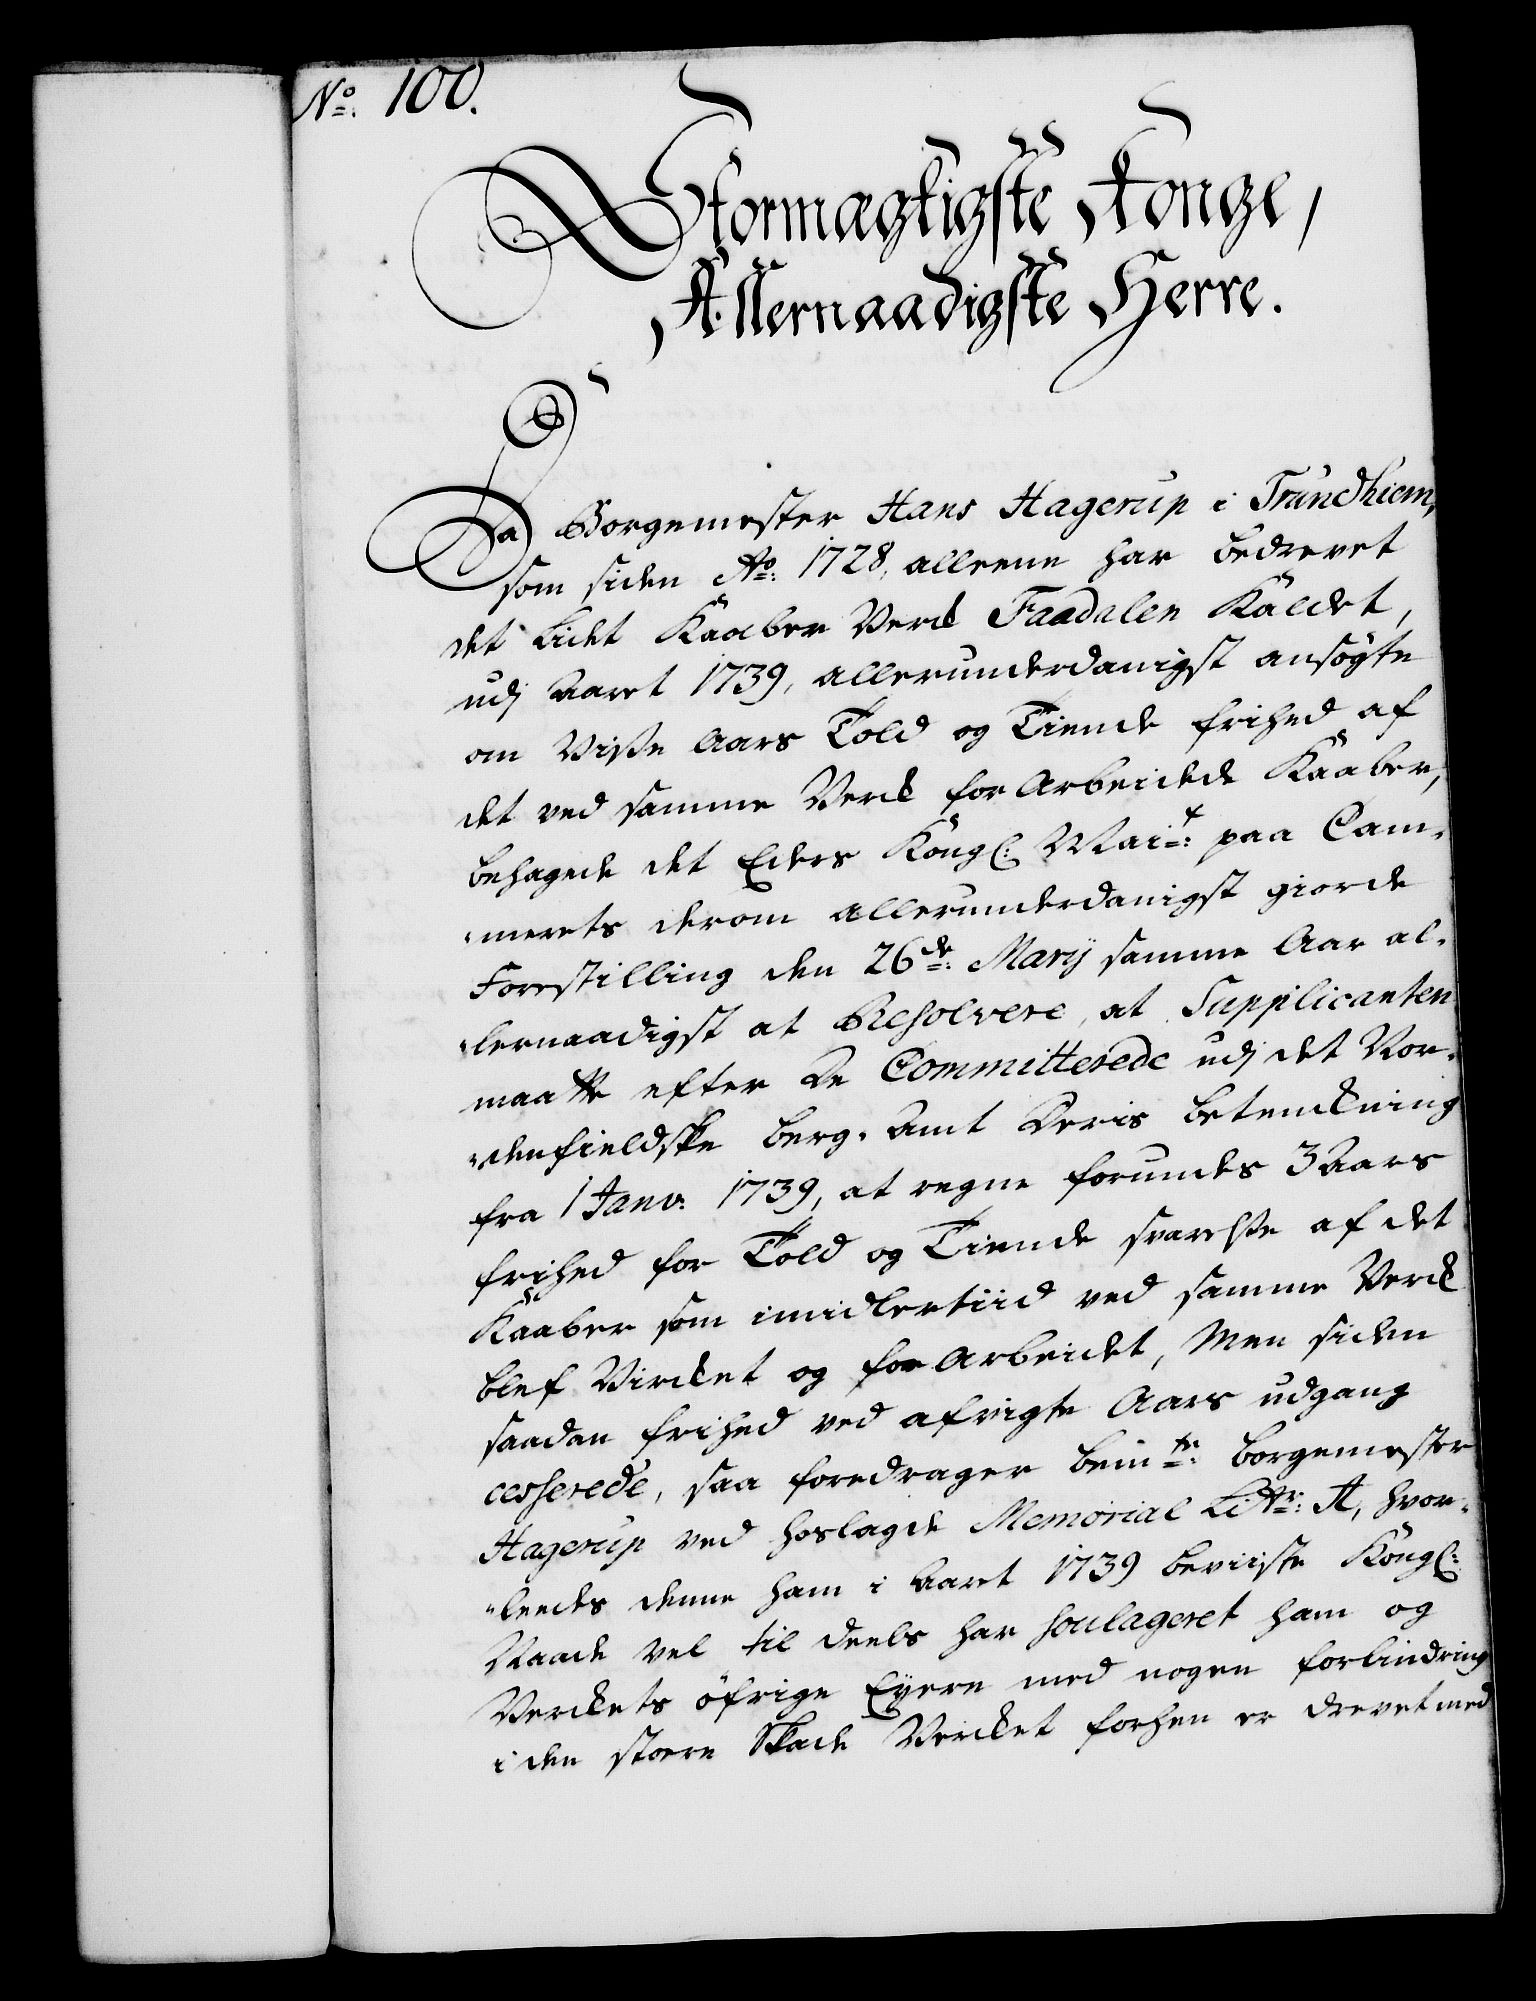 No: 100.
Stormægtigste Konge,
Allernaadigste Herre.
Da Borgemester Hans Hagerup i Trundhiem,
som siden Ao: 1728, alleene har bedrevet
det Lidet Kaaber Verck Faadalen Kaldet,
udj Aaret 1739, allerunderdanigst ansøgte
om Visse Aars Told og Tiende frihed af
det ved samme Verck for Arbeidede Kaaber,
behagede det Eders Kongl: Mait: paa Cam-
merets derom allerunderdanigst giorde
Forestilling den 26de: Martij samme Aar al-
lernaadigst at Resolvere, at Supplicanten
maatte efter De Committerede udj det Nor-
denfieldske Berg-Amt Deris betenckning
fra 1 Janv: 1739, at regne forundes 3 Aars
frihed for Told og Tiende svarelse af det
Kaaber som imidlertiid ved samme Verck
blef Vircket og for Arbeidet, Men siden
saadan frihed ved afvigte Aars udgang
cesserede, saa foredrager bem:te Borgemester
Hagerup ved hoslagde Memorial Littr: A, hvor-
leedes denne ham i Aaret 1739 beviiste Kongl:
Naade vel til deels har soulageret ham og
Verckets øfrige Eyere med nogen forlindring
i den stoere Skade Vercket forhen er drevet med